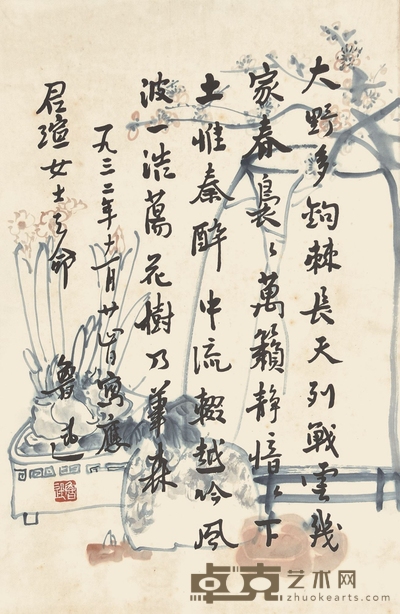 大野多鈎棘長天列戰雲幾
家春裊〻萬籟靜愔〻下
土惟秦醉中流輟越吟風
波一浩蕩花樹乃蕭森
一九三二年 月廿 日寫應
君瑄女士之命
魯迅
魯迅
卓克艺术网
www.zhuokearts.com